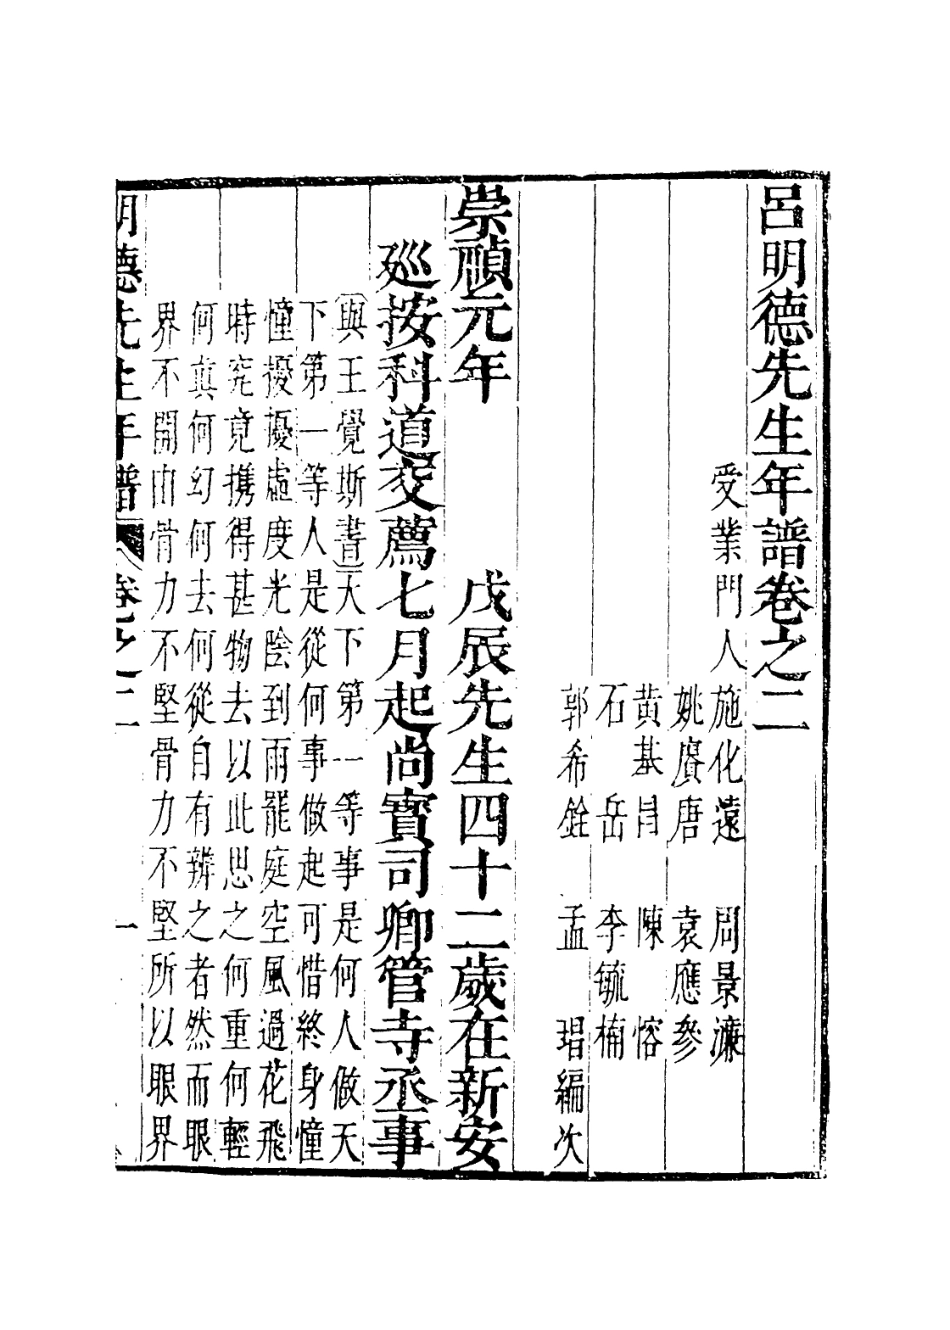 呂明德先生年譜卷之二
受業門人 施化遠 周景濂
姚賡唐 袁應參
黃基昌 陳愘
石岳 李毓楠
郭希銓 孟瑁編次
崇禎元年 戊辰先生四十二歲在新安
廵按科道交薦七月起尚寶司卿管寺丞事
與王覺斯書天下第一等事是何人做天
下第一等人是從何事做起可惜終身憧
憧擾擾虛度光陰到雨罷庭空風過花飛
時究竟携得甚物去以此思之何重何輕
何真何幻何去何從自有辨之者然而眼
界不開由骨力不堅骨力不堅所以眼界
明德先生年譜 卷之二 一